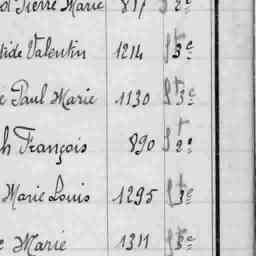 Pierre Marie 817 2e
Valentin 1214 3e
Paul Marie 1130 3e
François 890 2e
Marie Louis 1295 3e
Marie 1311 3e